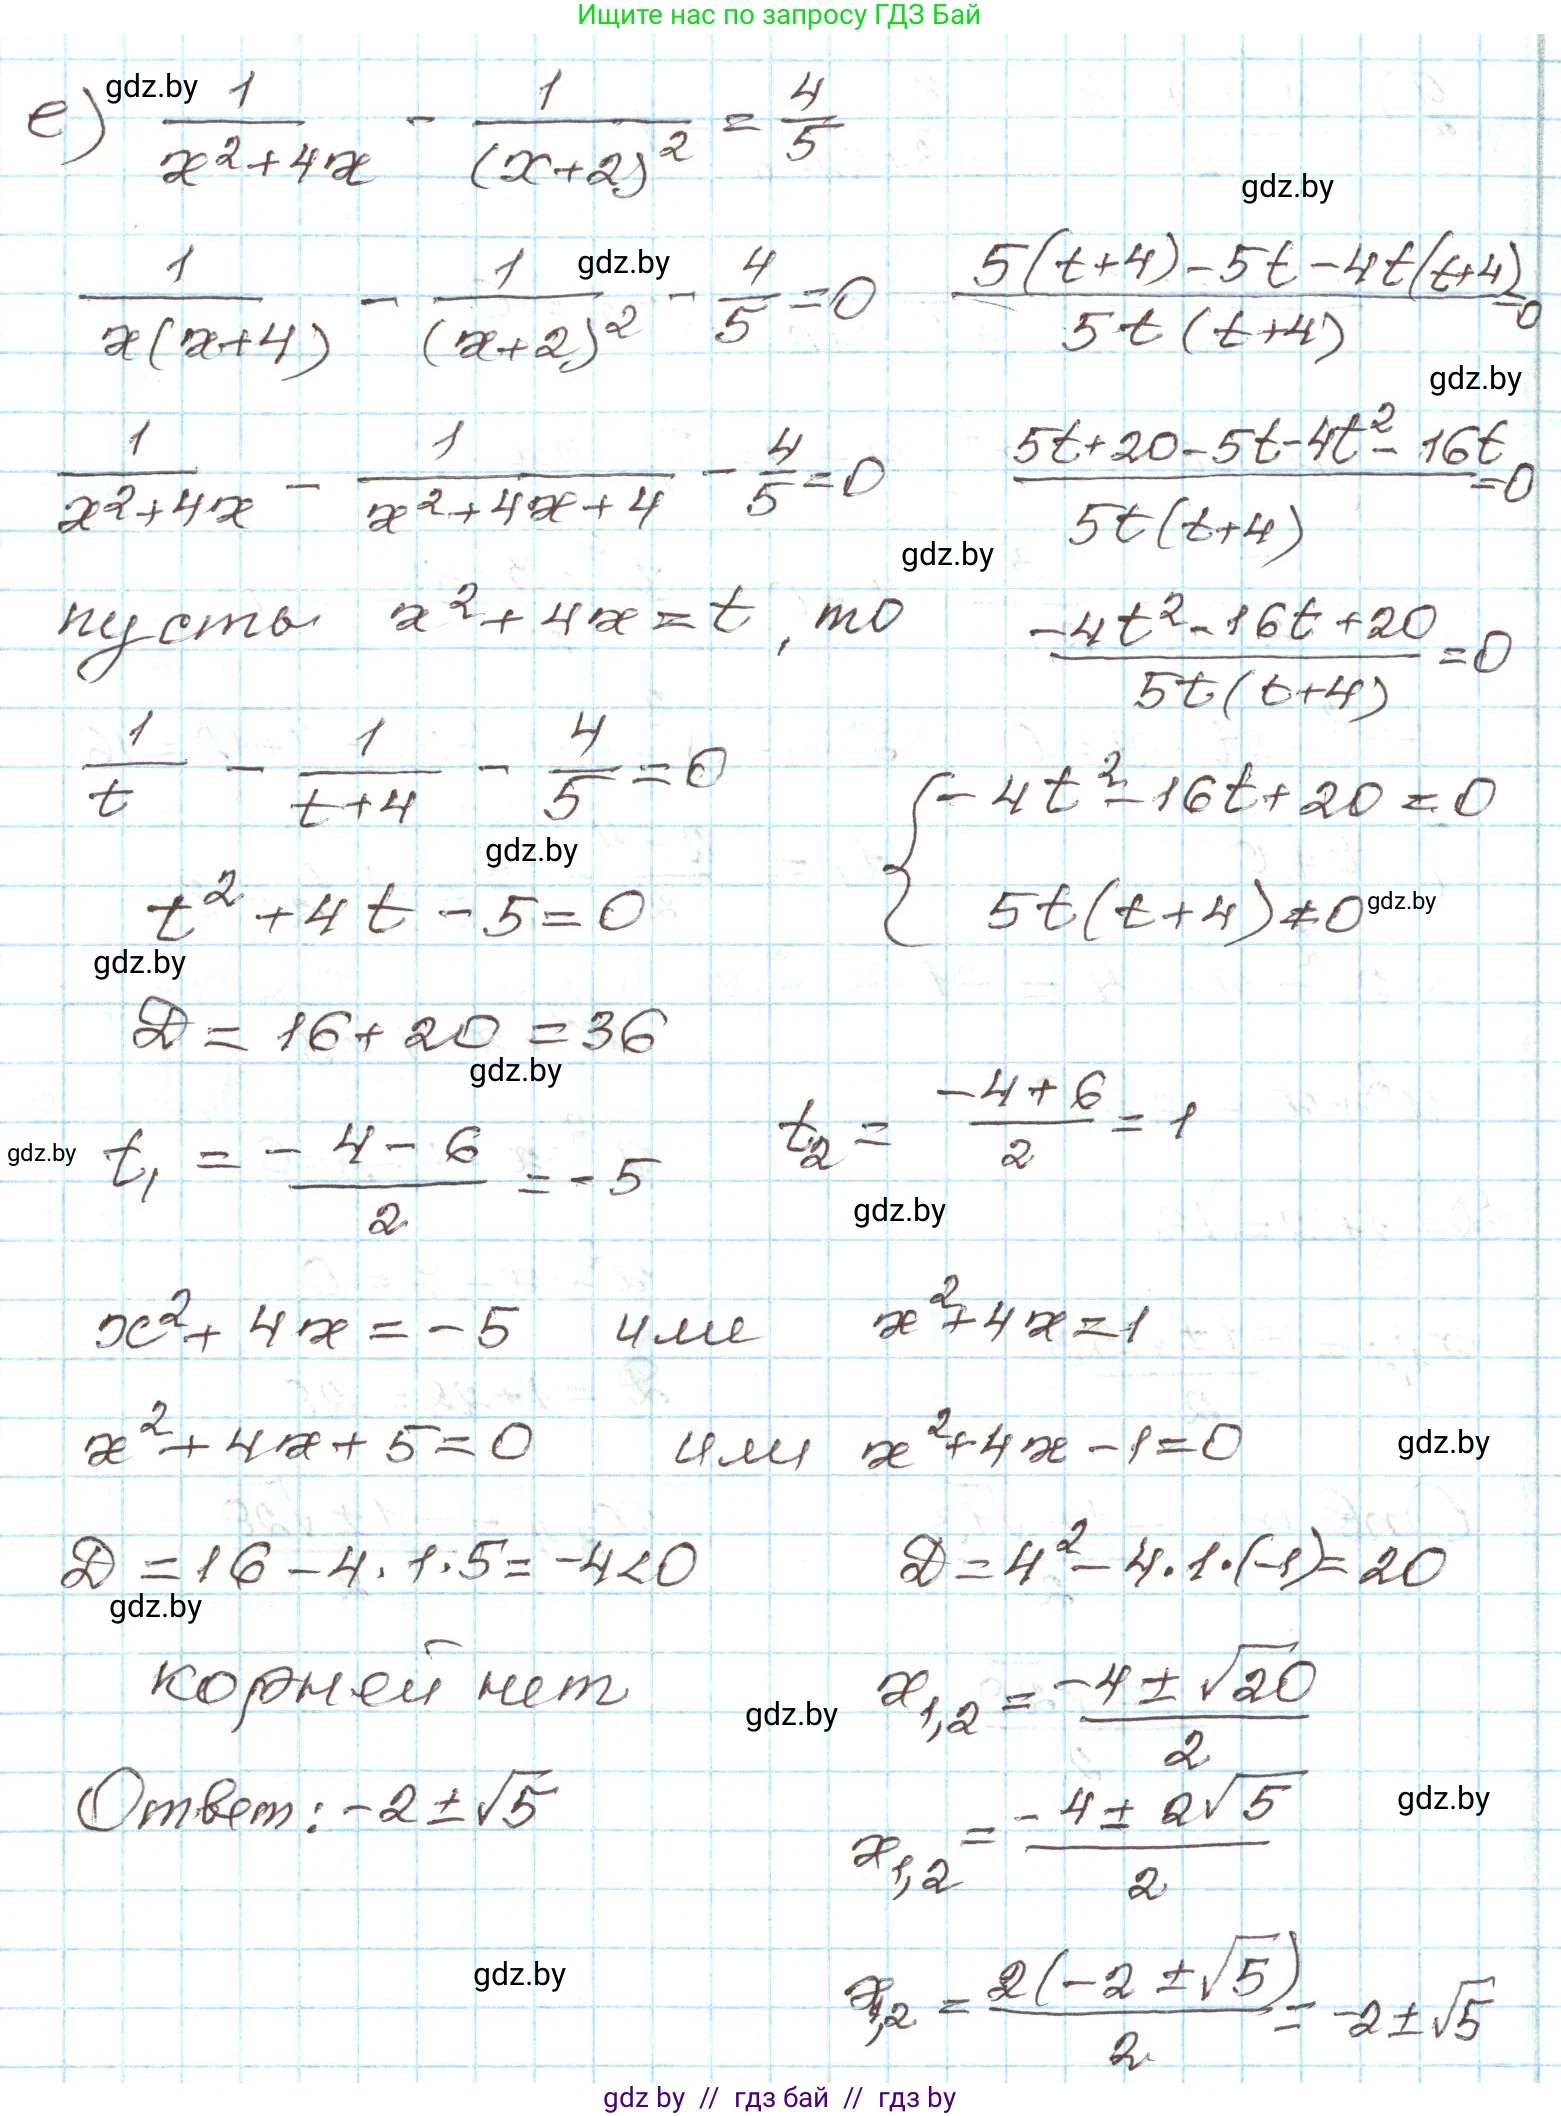 Ищите нас по запросу ГДЗ Бай
gdz.by
е) 1/(x²+4x) - 1/(x+2)² = 4/5
gdz.by
1/(x(x+4)) - 1/(x+2)² - 4/5 = 0
gdz.by
1/(x²+4x) - 1/(x²+4x+4) - 4/5 = 0
пусть x²+4x = t, то
1/t - 1/(t+4) - 4/5 = 0
gdz.by
(5(t+4) - 5t - 4t(t+4))/(5t(t+4)) = 0
gdz.by
(5t+20-5t-4t²-16t)/(5t(t+4)) = 0
gdz.by
(-4t²-16t+20)/(5t(t+4)) = 0
{ -4t²-16t+20 = 0
5t(t+4) ≠ 0
gdz.by
t²+4t-5=0
gdz.by
D = 16+20 = 36
gdz.by
gdz.by
t₁ = (-4-6)/2 = -5 t₂ = (-4+6)/2 = 1
gdz.by
x²+4x = -5 или x²+4x=1
x²+4x+5=0 или x²+4x-1=0
gdz.by
D = 16-4·1·5 = -4<0 D = 4²-4·1·(-1) = 20
gdz.by
корней нет
gdz.by
x₁,₂ = (-4±√20)/2
Ответ: -2±√5
gdz.by
x₁,₂ = (-4±2√5)/2
gdz.by
x₁,₂ = (2(-2±√5))/2 = -2±√5
gdz by // гдз бай // гдз by